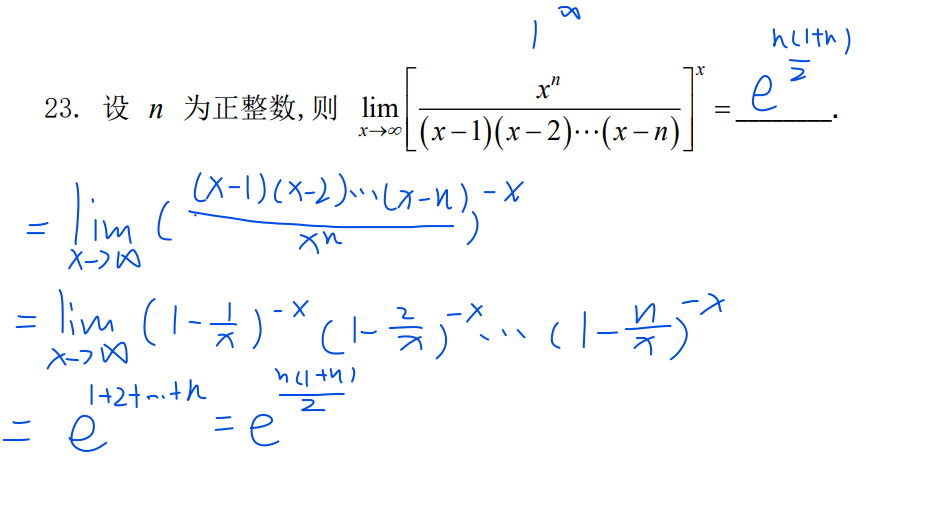 1^∞
23. 设 n 为正整数,则 lim_{x→∞} [x^n / ((x−1)(x−2)⋯(x−n))]^x = e^{n(1+n)/2}.
= lim_{x→∞} ((x-1)(x-2)⋯(x-n) / x^n)^{-x}
= lim_{x→∞} (1-1/x)^{-x} (1-2/x)^{-x} ⋯ (1-n/x)^{-x}
= e^{1+2+⋯+n} = e^{n(1+n)/2}